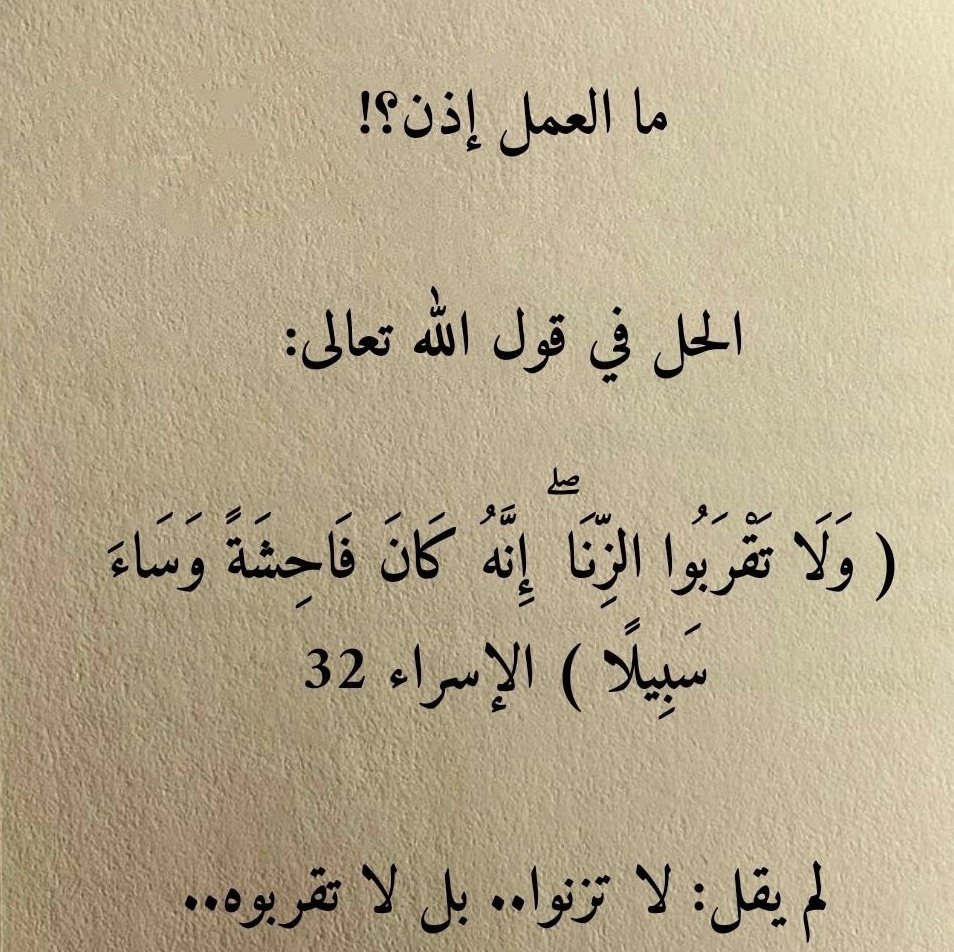 ما العمل إذن؟!
الحل في قول الله تعالى:
( وَلَا تَقْرَبُوا الزِّنَا ۖ إِنَّهُ كَانَ فَاحِشَةً وَسَاءَ
سَبِيلًا ) الإسراء 32
لم يقل: لا تزنوا.. بل لا تقربوه..